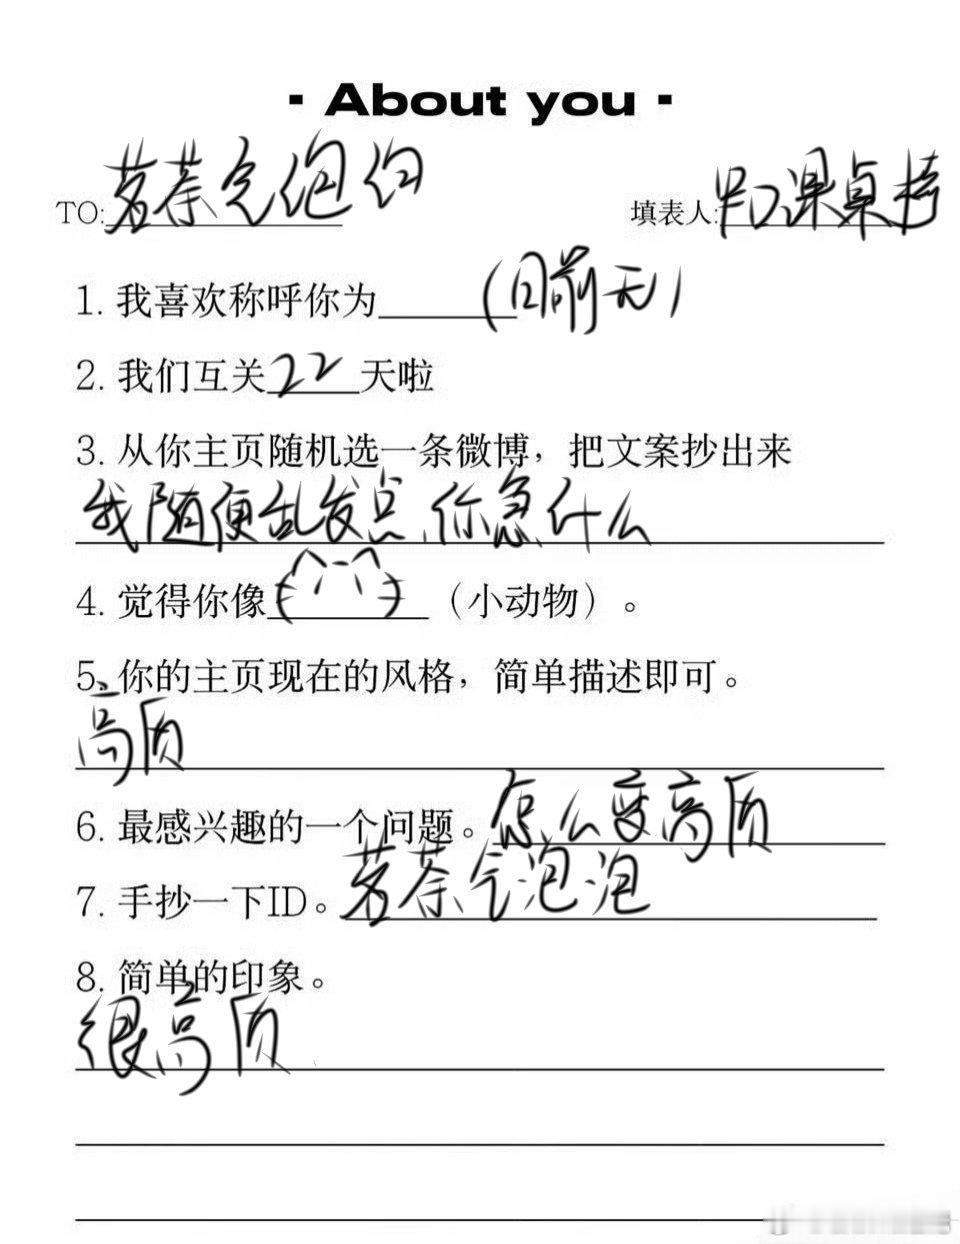 - About you -
TO:茗荼气泡泡 填表人:
1. 我喜欢称呼你为 (目前无)
2. 我们互关22天啦
3. 从你主页随机选一条微博，把文案抄出来
我随便乱发点、你急什么
4. 觉得你像 （小动物）。
5. 你的主页现在的风格，简单描述即可。
高质
6. 最感兴趣的一个问题。怎么变高质
7. 手抄一下ID。茗荼气泡泡
8. 简单的印象。
很高质